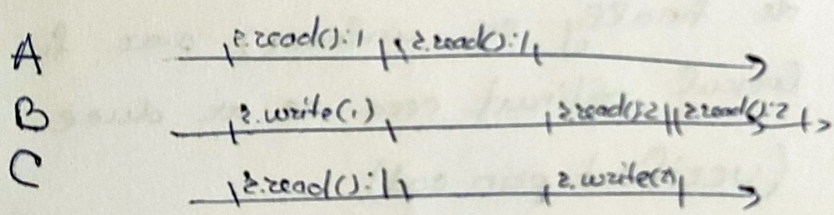 A r.read():1 r.read():1
B r.write(1) r.read():2 r.read():2
C r.read():1 r.write(2)